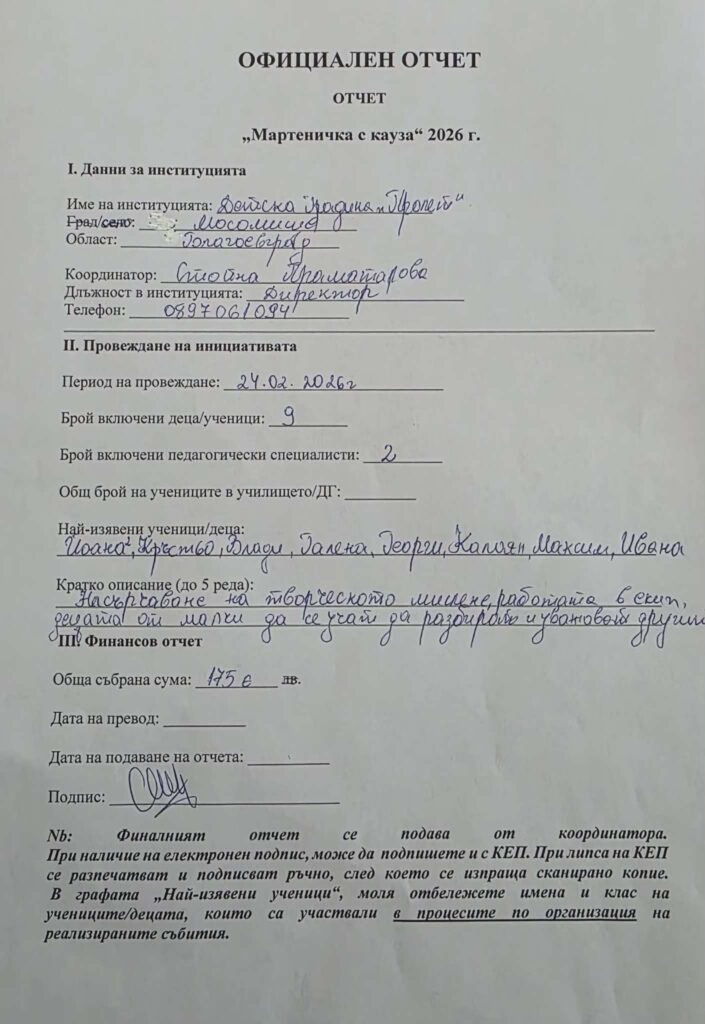 ОФИЦИАЛЕН ОТЧЕТ
ОТЧЕТ
„Мартеничка с кауза“ 2026 г.
I. Данни за институцията
Име на институцията: Детска градина „Пролет“
Град/село: Мосомище
Област: Благоевград
Координатор: Стойна Праматарова
Длъжност в институцията: Директор
Телефон: 0897061094
II. Провеждане на инициативата
Период на провеждане: 24.02.2026г
Брой включени деца/ученици: 9
Брой включени педагогически специалисти: 2
Общ брой на учениците в училището/ДГ:
Най-изявени ученици/деца:
Йоана, Кръстьо, Влади, Галена, Георги, Калоян, Максим, Ивана
Кратко описание (до 5 реда):
Насърчаване на творческото мислене, работата в екип,
децата от малки да се учат да разбират и уважават
III. Финансов отчет
Обща събрана сума: 175 € лв.
Дата на превод:
Дата на подаване на отчета:
Подпис:
Nb: Финалният отчет се подава от координатора.
При наличие на електронен подпис, може да подпишете и с КЕП. При липса на КЕП
се разпечатват и подписват ръчно, след което се изпраща сканирано копие.
В графата „Най-изявени ученици“, моля отбележете имена и клас на
учениците/децата, които са участвали в процесите по организация на
реализираните събития.